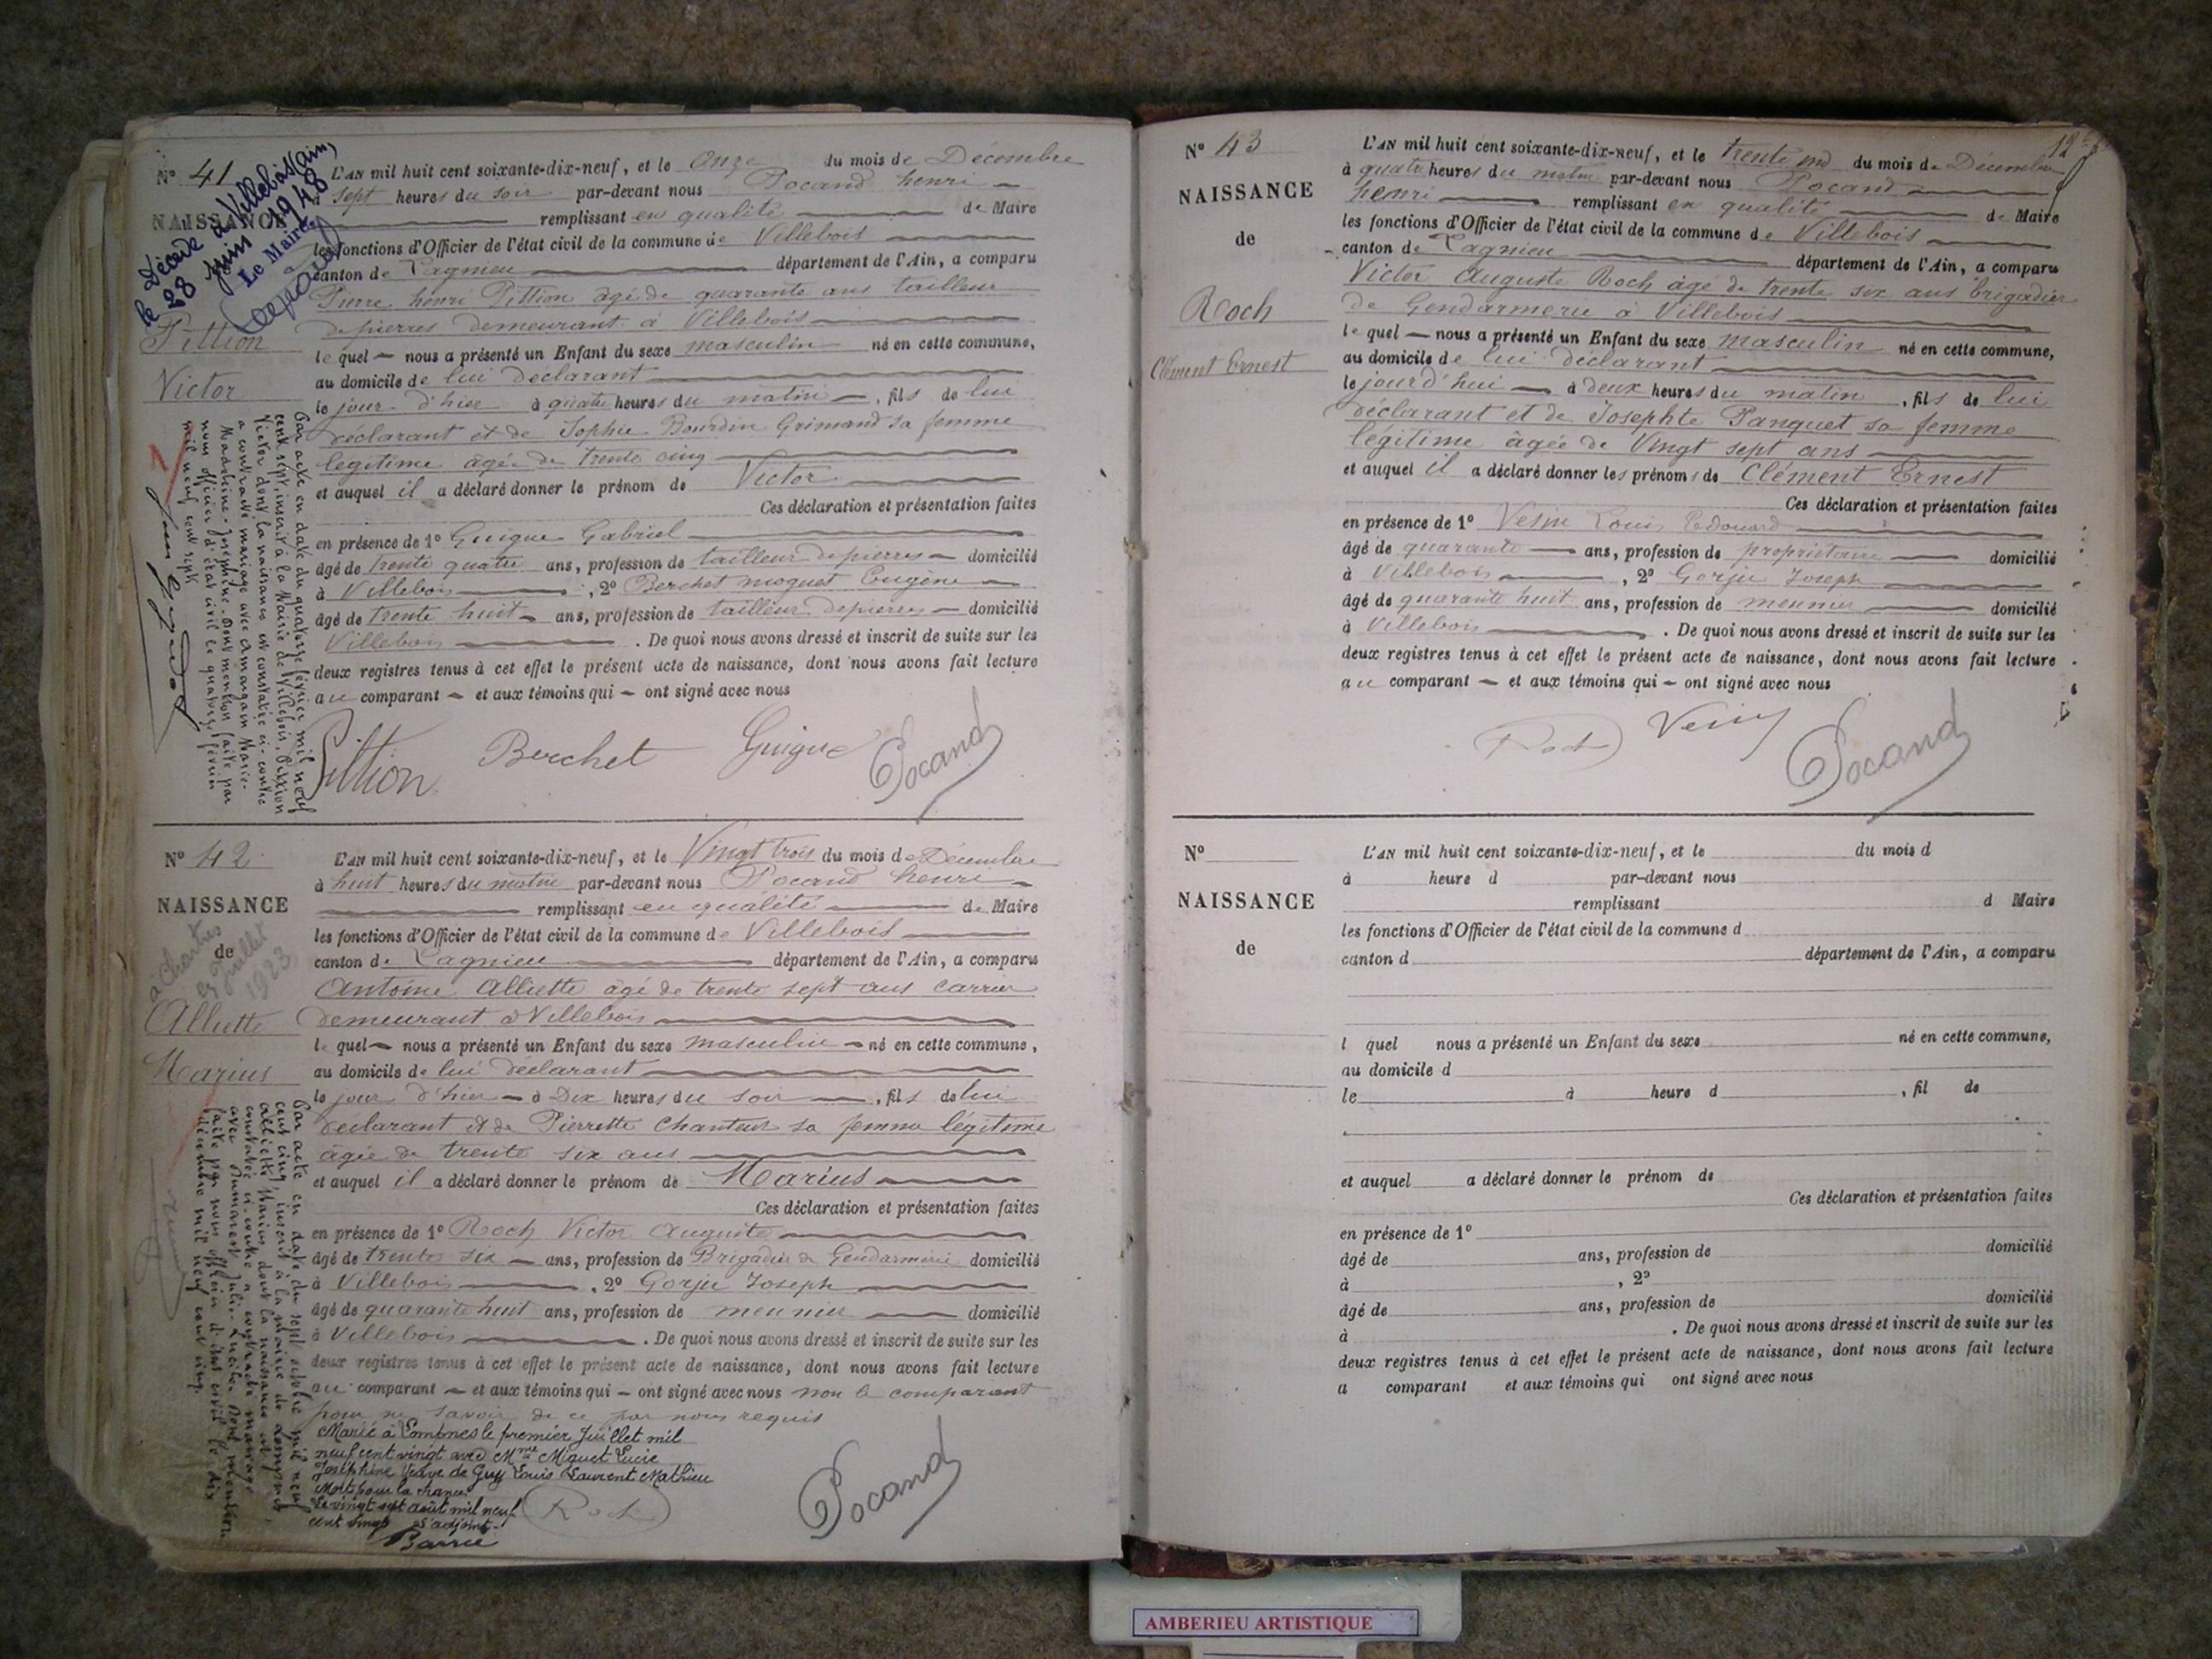 N° 41
NAISSANCE
Décédé à Villebois (Ain)
le 28 juin 1948
Le Maire
Pittion
Victor
L'AN mil huit cent soixante-dix-neuf, et le Onze du mois de Décembre
à sept heures du soir par-devant nous Pocand henri
remplissant en qualité de Maire
les fonctions d'Officier de l'état civil de la commune de Villebois
canton de Lagnieu département de l'Ain, a comparu
Pierre henri Pittion âgé de quarante ans tailleur
de pierres demeurant à Villebois
le quel nous a présenté un Enfant du sexe masculin né en cette commune,
au domicile de lui déclarant
le jour d'hier à quatre heures du matin, fils de lui
déclarant et de Sophie Bourdin Grimaud sa femme
légitime âgée de trente cinq
et auquel il a déclaré donner le prénom de Victor
Ces déclaration et présentation faites
en présence de 1° Guigue Gabriel
âgé de trente quatre ans, profession de tailleur de pierres domicilié
à Villebois, 2° Berchet moguet Eugène
âgé de trente huit ans, profession de tailleur de pierres domicilié
Villebois. De quoi nous avons dressé et inscrit de suite sur les
deux registres tenus à cet effet le présent acte de naissance, dont nous avons fait lecture
au comparant et aux témoins qui ont signé avec nous
Pittion Berchet Guigue Pocand
Par acte en date du quatorze février mil neuf
cent sept, inscrit à la Mairie de Villebois, Pittion
Victor dont la naissance est constatée ci-contre
a contracté mariage avec Amangain Marie-
Madeleine-Joséphine. Dont mention faite par
nous officier d'état civil le quatorze février
mil neuf cent sept
N° 42
NAISSANCE
de
à Chartres
Juillet
1923
Alliette
Marius
L'AN mil huit cent soixante-dix-neuf, et le Vingt trois du mois de Décembre
à huit heures du matin par-devant nous Pocand henri
remplissant en qualité de Maire
les fonctions d'Officier de l'état civil de la commune de Villebois
canton de Lagnieu département de l'Ain, a comparu
Antoine Alliette âgé de trente sept ans carrier
demeurant à Villebois
le quel nous a présenté un Enfant du sexe masculin né en cette commune,
au domicile de lui déclarant
le jour d'hier à Dix heures du soir, fils de lui
déclarant et de Pierrette Chanteur sa femme légitime
âgée de trente six ans
et auquel il a déclaré donner le prénom de Marius
Ces déclaration et présentation faites
en présence de 1° Roch Victor Auguste
âgé de trente six ans, profession de Brigadier de Gendarmerie domicilié
à Villebois, 2° Gorju Joseph
âgé de quarante huit ans, profession de meunier domicilié
à Villebois. De quoi nous avons dressé et inscrit de suite sur les
deux registres tenus à cet effet le présent acte de naissance, dont nous avons fait lecture
au comparant et aux témoins qui ont signé avec nous non le comparant
pour ne savoir de ce par nous requis
Marié à Lompnes le premier Juillet mil
neuf cent vingt avec Mme Miguet Lucie
Joséphine Veuve de Guy Louis Laurent Mathieu
Mort pour la France
Le vingt sept août mil neuf
cent vingt L'adjoint
Barrie
Roch Pocand
Par acte en date du sept octobre mil neuf
cent cinq, inscrit à la mairie de Lompnes,
Alliette Marius dont la naissance est
constatée ci-contre a contracté mariage
avec Dumarest Julie-Lucie. Dont mention
faite par nous officier d'état civil le dix
décembre mil neuf cent cinq
N° 43
NAISSANCE
de
Roch
Clément Ernest
L'AN mil huit cent soixante-dix-neuf, et le trente un du mois de Décembre
à quatre heures du matin par-devant nous Pocand
henri remplissant en qualité de Maire
les fonctions d'Officier de l'état civil de la commune de Villebois
canton de Lagnieu département de l'Ain, a comparu
Victor Auguste Roch âgé de trente six ans brigadier
de Gendarmerie à Villebois
le quel nous a présenté un Enfant du sexe masculin né en cette commune,
au domicile de lui déclarant
le jourd'hui à deux heures du matin, fils de lui
déclarant et de Josephte Panquet sa femme
légitime âgée de Vingt sept ans
et auquel il a déclaré donner les prénoms de Clément Ernest
Ces déclaration et présentation faites
en présence de 1° Vesin Louis Edouard
âgé de quarante ans, profession de propriétaire domicilié
à Villebois, 2° Gorju Joseph
âgé de quarante huit ans, profession de meunier domicilié
à Villebois. De quoi nous avons dressé et inscrit de suite sur les
deux registres tenus à cet effet le présent acte de naissance, dont nous avons fait lecture
au comparant et aux témoins qui ont signé avec nous
Roch Vesin Pocand
N°
NAISSANCE
de
L'AN mil huit cent soixante-dix-neuf, et le du mois d
à heure d par-devant nous
remplissant d Maire
les fonctions d'Officier de l'état civil de la commune d
canton d département de l'Ain, a comparu
l quel nous a présenté un Enfant du sexe né en cette commune,
au domicile d
le à heure d, fil de
et auquel a déclaré donner le prénom de
Ces déclaration et présentation faites
en présence de 1°
âgé de ans, profession de domicilié
à , 2°
âgé de ans, profession de domicilié
à . De quoi nous avons dressé et inscrit de suite sur les
deux registres tenus à cet effet le présent acte de naissance, dont nous avons fait lecture
a comparant et aux témoins qui ont signé avec nous
AMBERIEU ARTISTIQUE